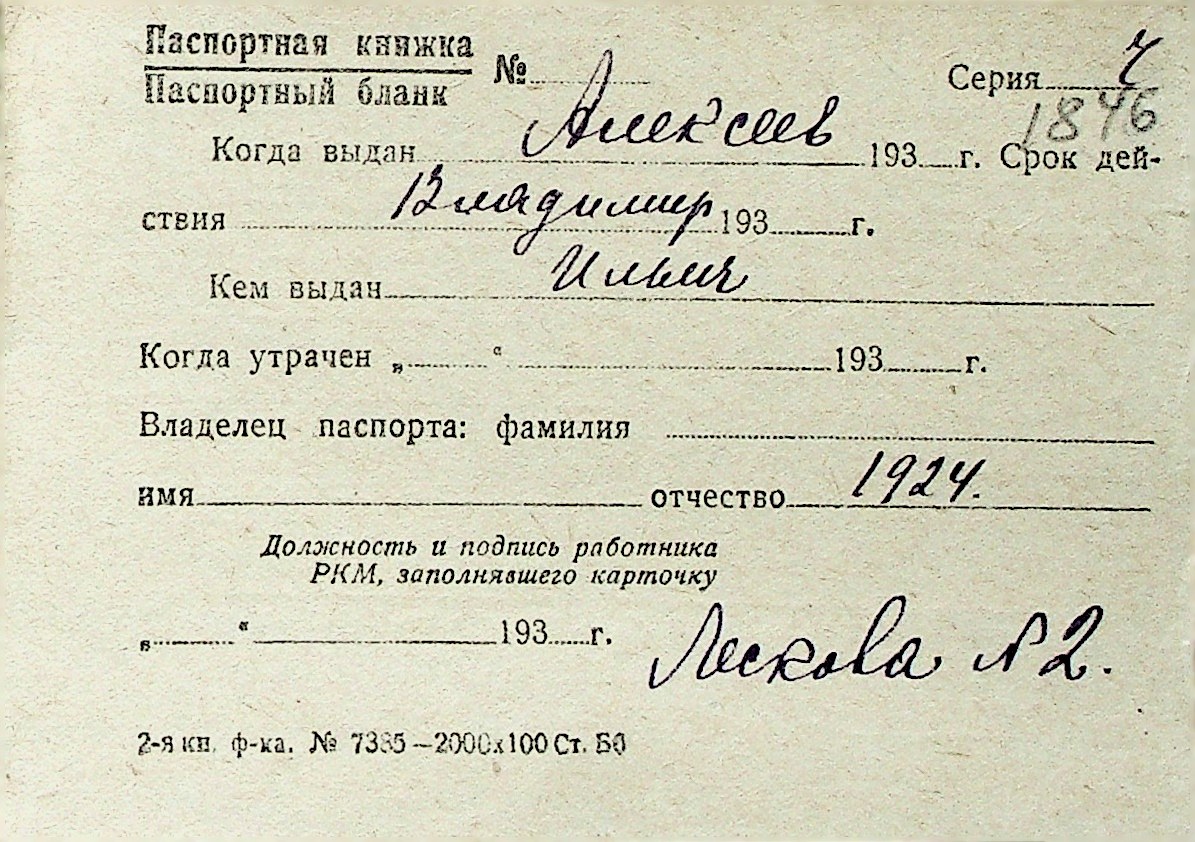 Паспортная книжка
Паспортный бланк № Серия ч
1846
Когда выдан Алексеев 193 г. Срок дей-
ствия Владимир 193 г.
Кем выдан Ильич
Когда утрачен „ “ 193 г.
Владелец паспорта: фамилия
имя отчество 1924.
Должность и подпись работника
РКМ, заполнявшего карточку
„ “ 193 г. Лескова №2.
2-я кн. ф-ка. № 7385—2000х100 Ст. Бб